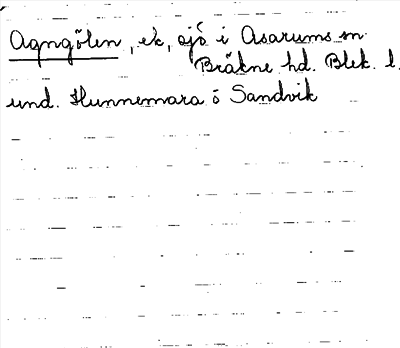 Agngölen, ek, sjö i Asarums sn
Bräkne hd. Blek. l.
und. Hunnemara o Sandvik